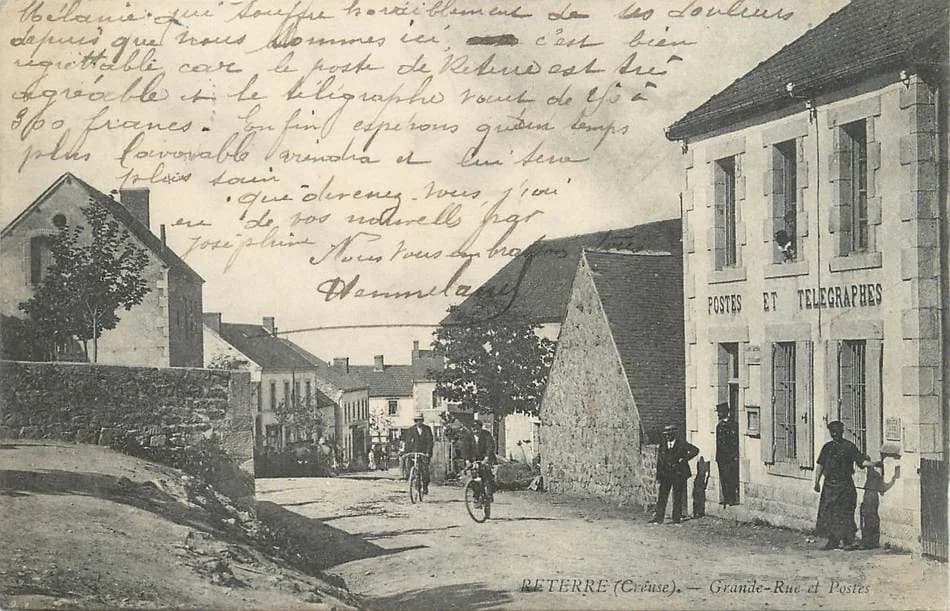 Mélanie qui souffre horriblement de ses douleurs
depuis que nous sommes ici, c'est bien
regrettable car le poste de Reterre est très
agréable et le télégraphe vaut de à
300 francs. Enfin espérons qu'un temps
plus favorable viendra et lui sera
plus sain
que devenez vous, j'ai
eu de vos nouvelle par
Joséphine Nous vous embrassons tous
POSTES ET TELEGRAPHES
RETERRE (Creuse). — Grande-Rue et Postes